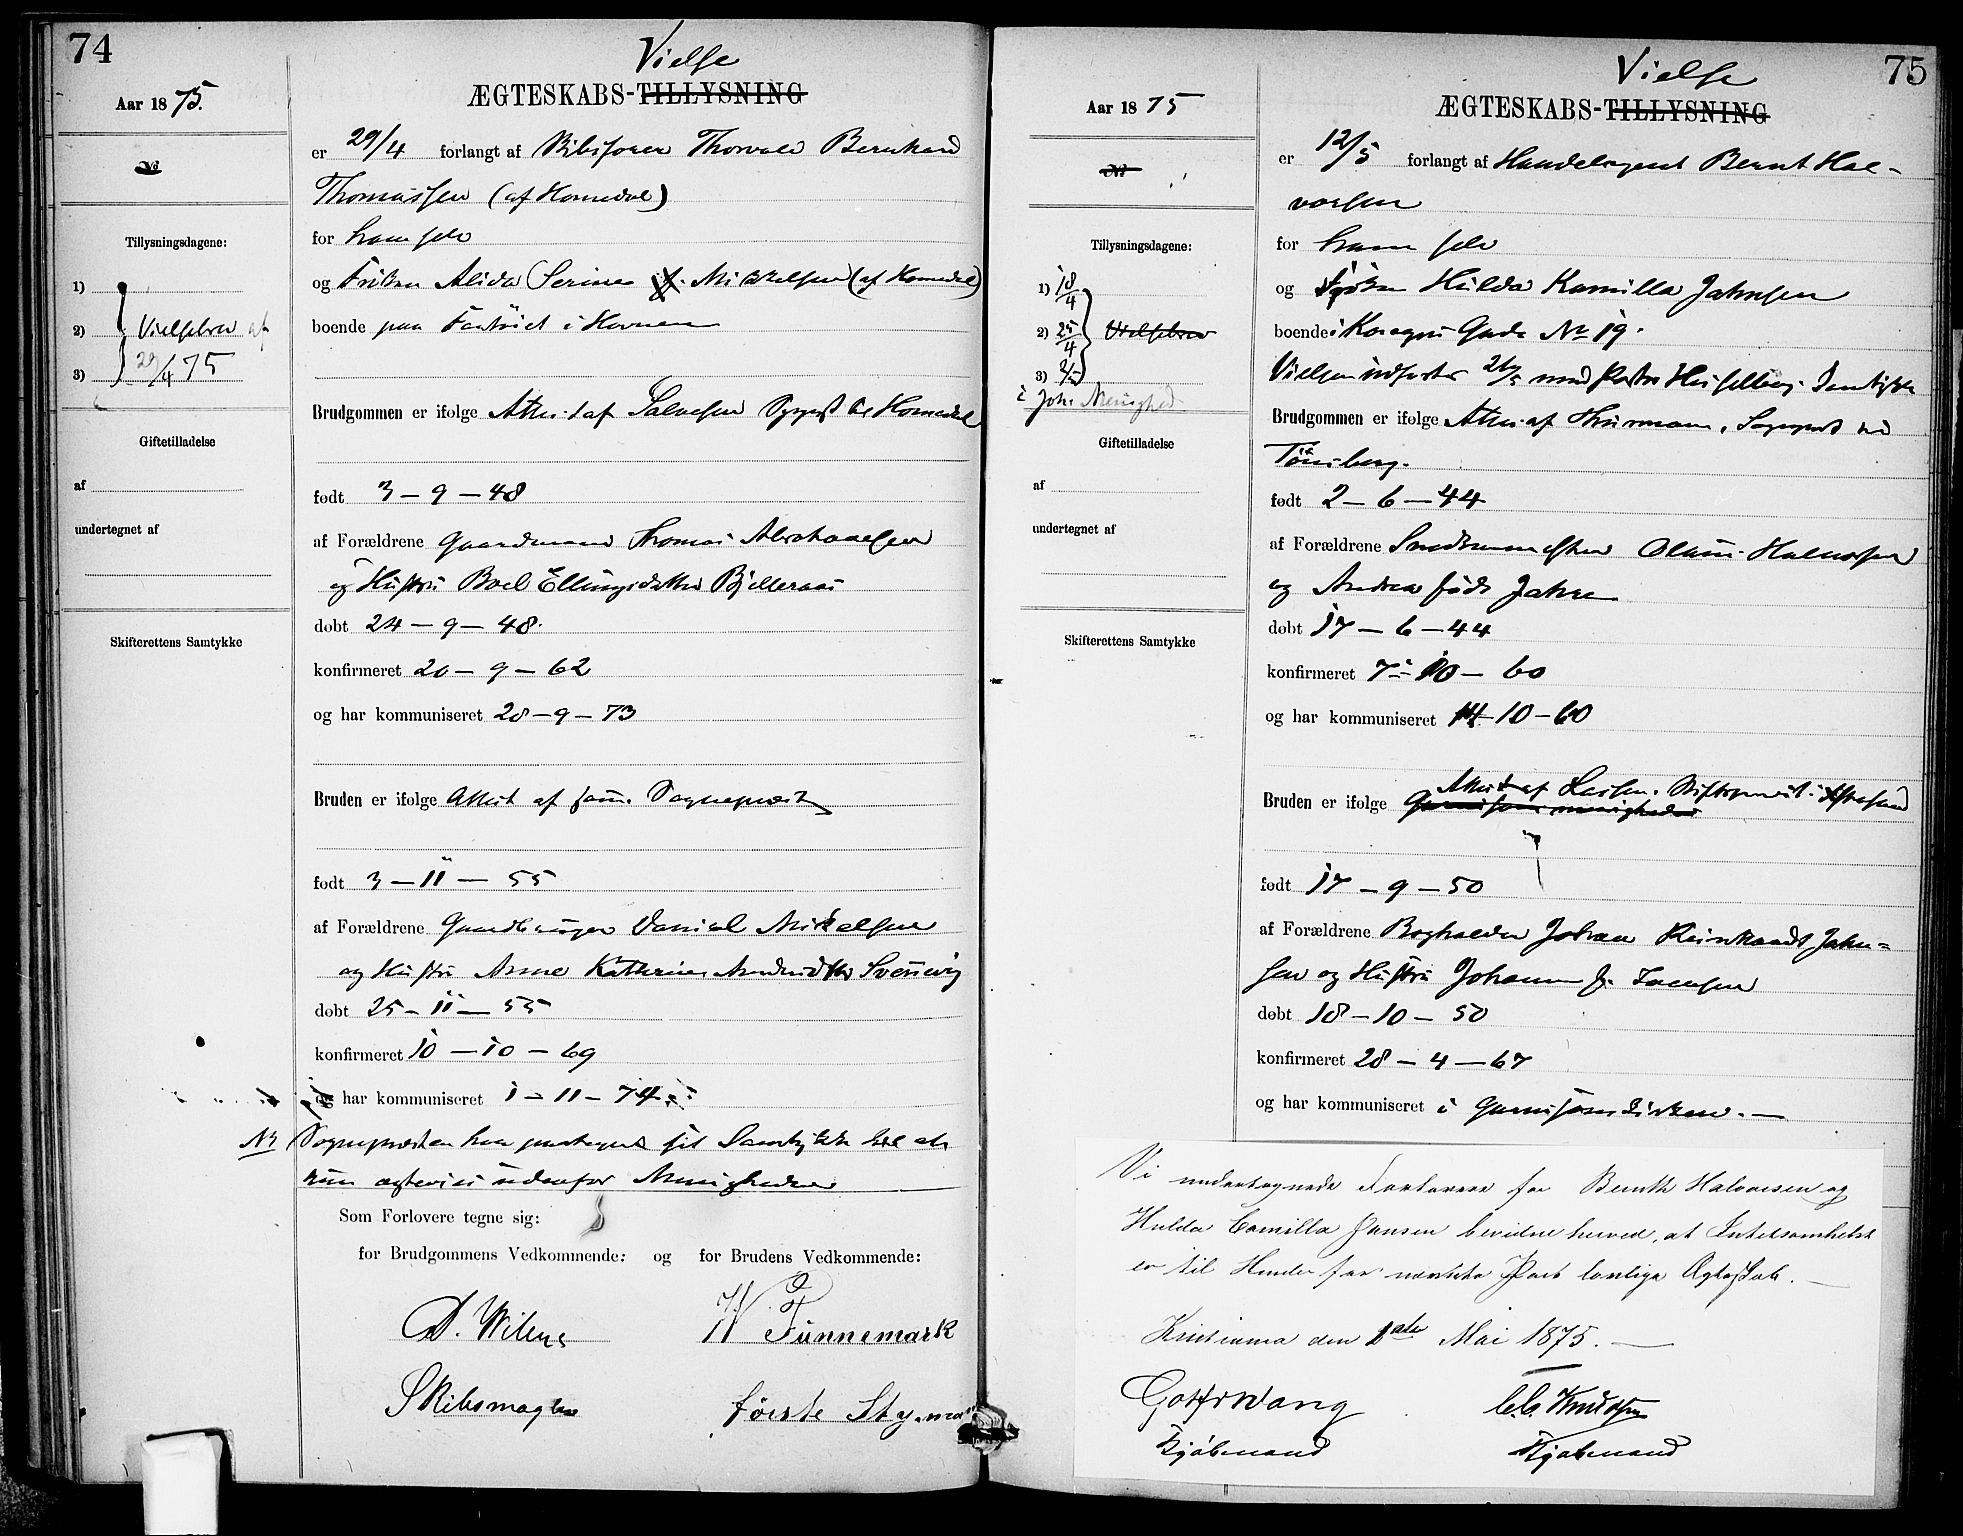 74
Vielse
ÆGTESKABS-TILLYSNING
Aar 1875.
er 29/4 forlangt af Skibsfører Thorvald Bernhard
Thomassen (af Homedal)
for ham selv
og Frøken Alida Serine Mikkelsen (af Homedal)
boende paa Fartøiet i Havnen
Tillysningsdagene:
1)
2) Vielsebrev af
3) 29/4 75
Brudgommen er ifølge Attest af Salvesen Sognepst til Homedal
Giftetilladelse
af
undertegnet af
født 3-9-48
af Forældrene Gaardmand Thomas Abrahamsen
og Hustru Boel Ellingsdatter
døbt 24-9-48.
konfirmeret 20-9-62
og har kommuniseret 28-9-73
Skifterettens Samtykke
Bruden er ifølge Attest af sam. Sognepræst
født 3-11-55
af Forældrene Gaardbruger Daniel Mikkelsen
og Hustru Anne Kathrine
døbt 25-11-55
konfirmeret 10-10-69
og har kommuniseret 1-11-74
NB Sognepræsten har paategnet sit Samtykke til at
kun ægtevies udenfor Menigheden
Som Forlovere tegne sig:
for Brudgommens Vedkommende: og for Brudens Vedkommende:
Funnemark
Skibsmægler
første Styrmand
75
Vielse
ÆGTESKABS-TILLYSNING
Aar 1875
er 12/5 forlangt af Handelsagent Bernt Hal-
vorsen
for ham selv
og Frøken Hulda Kamilla Jahnsen
boende i Gade No 19.
Tillysningsdagene:
1) 18/4
2) 25/4 Vielsebrev
3) 2/5
i Joh. Menighed
Brudgommen er ifølge Attest af Sognepst ved
Tønsberg.
Giftetilladelse
af
undertegnet af
født 2-6-44
af Forældrene Halvorsen
og Andrea født Jahre
døbt 17-6-44
konfirmeret 7-10-60
og har kommuniseret 14-10-60
Skifterettens Samtykke
Bruden er ifølge Attest af
Garnisonsmenigheden
født 17-9-50
af Forældrene Bogholder Johan Reinhardt Jahn-
sen og Hustru
døbt 18-10-50
konfirmeret 28-4-67
og har kommuniseret i Garnisonskirken.
Vi undertegnede Forlovere for Bernth Halvorsen og
Hulda Camilla Jansen bevidne herved, at Intetsomhelst
er til Hinder for nævnte Pars lovlige Ægteskab.
Kristiania den Mai 1875.
Gottfr Wang C.C. Knudsen
Kjøbmand Kjøbmand